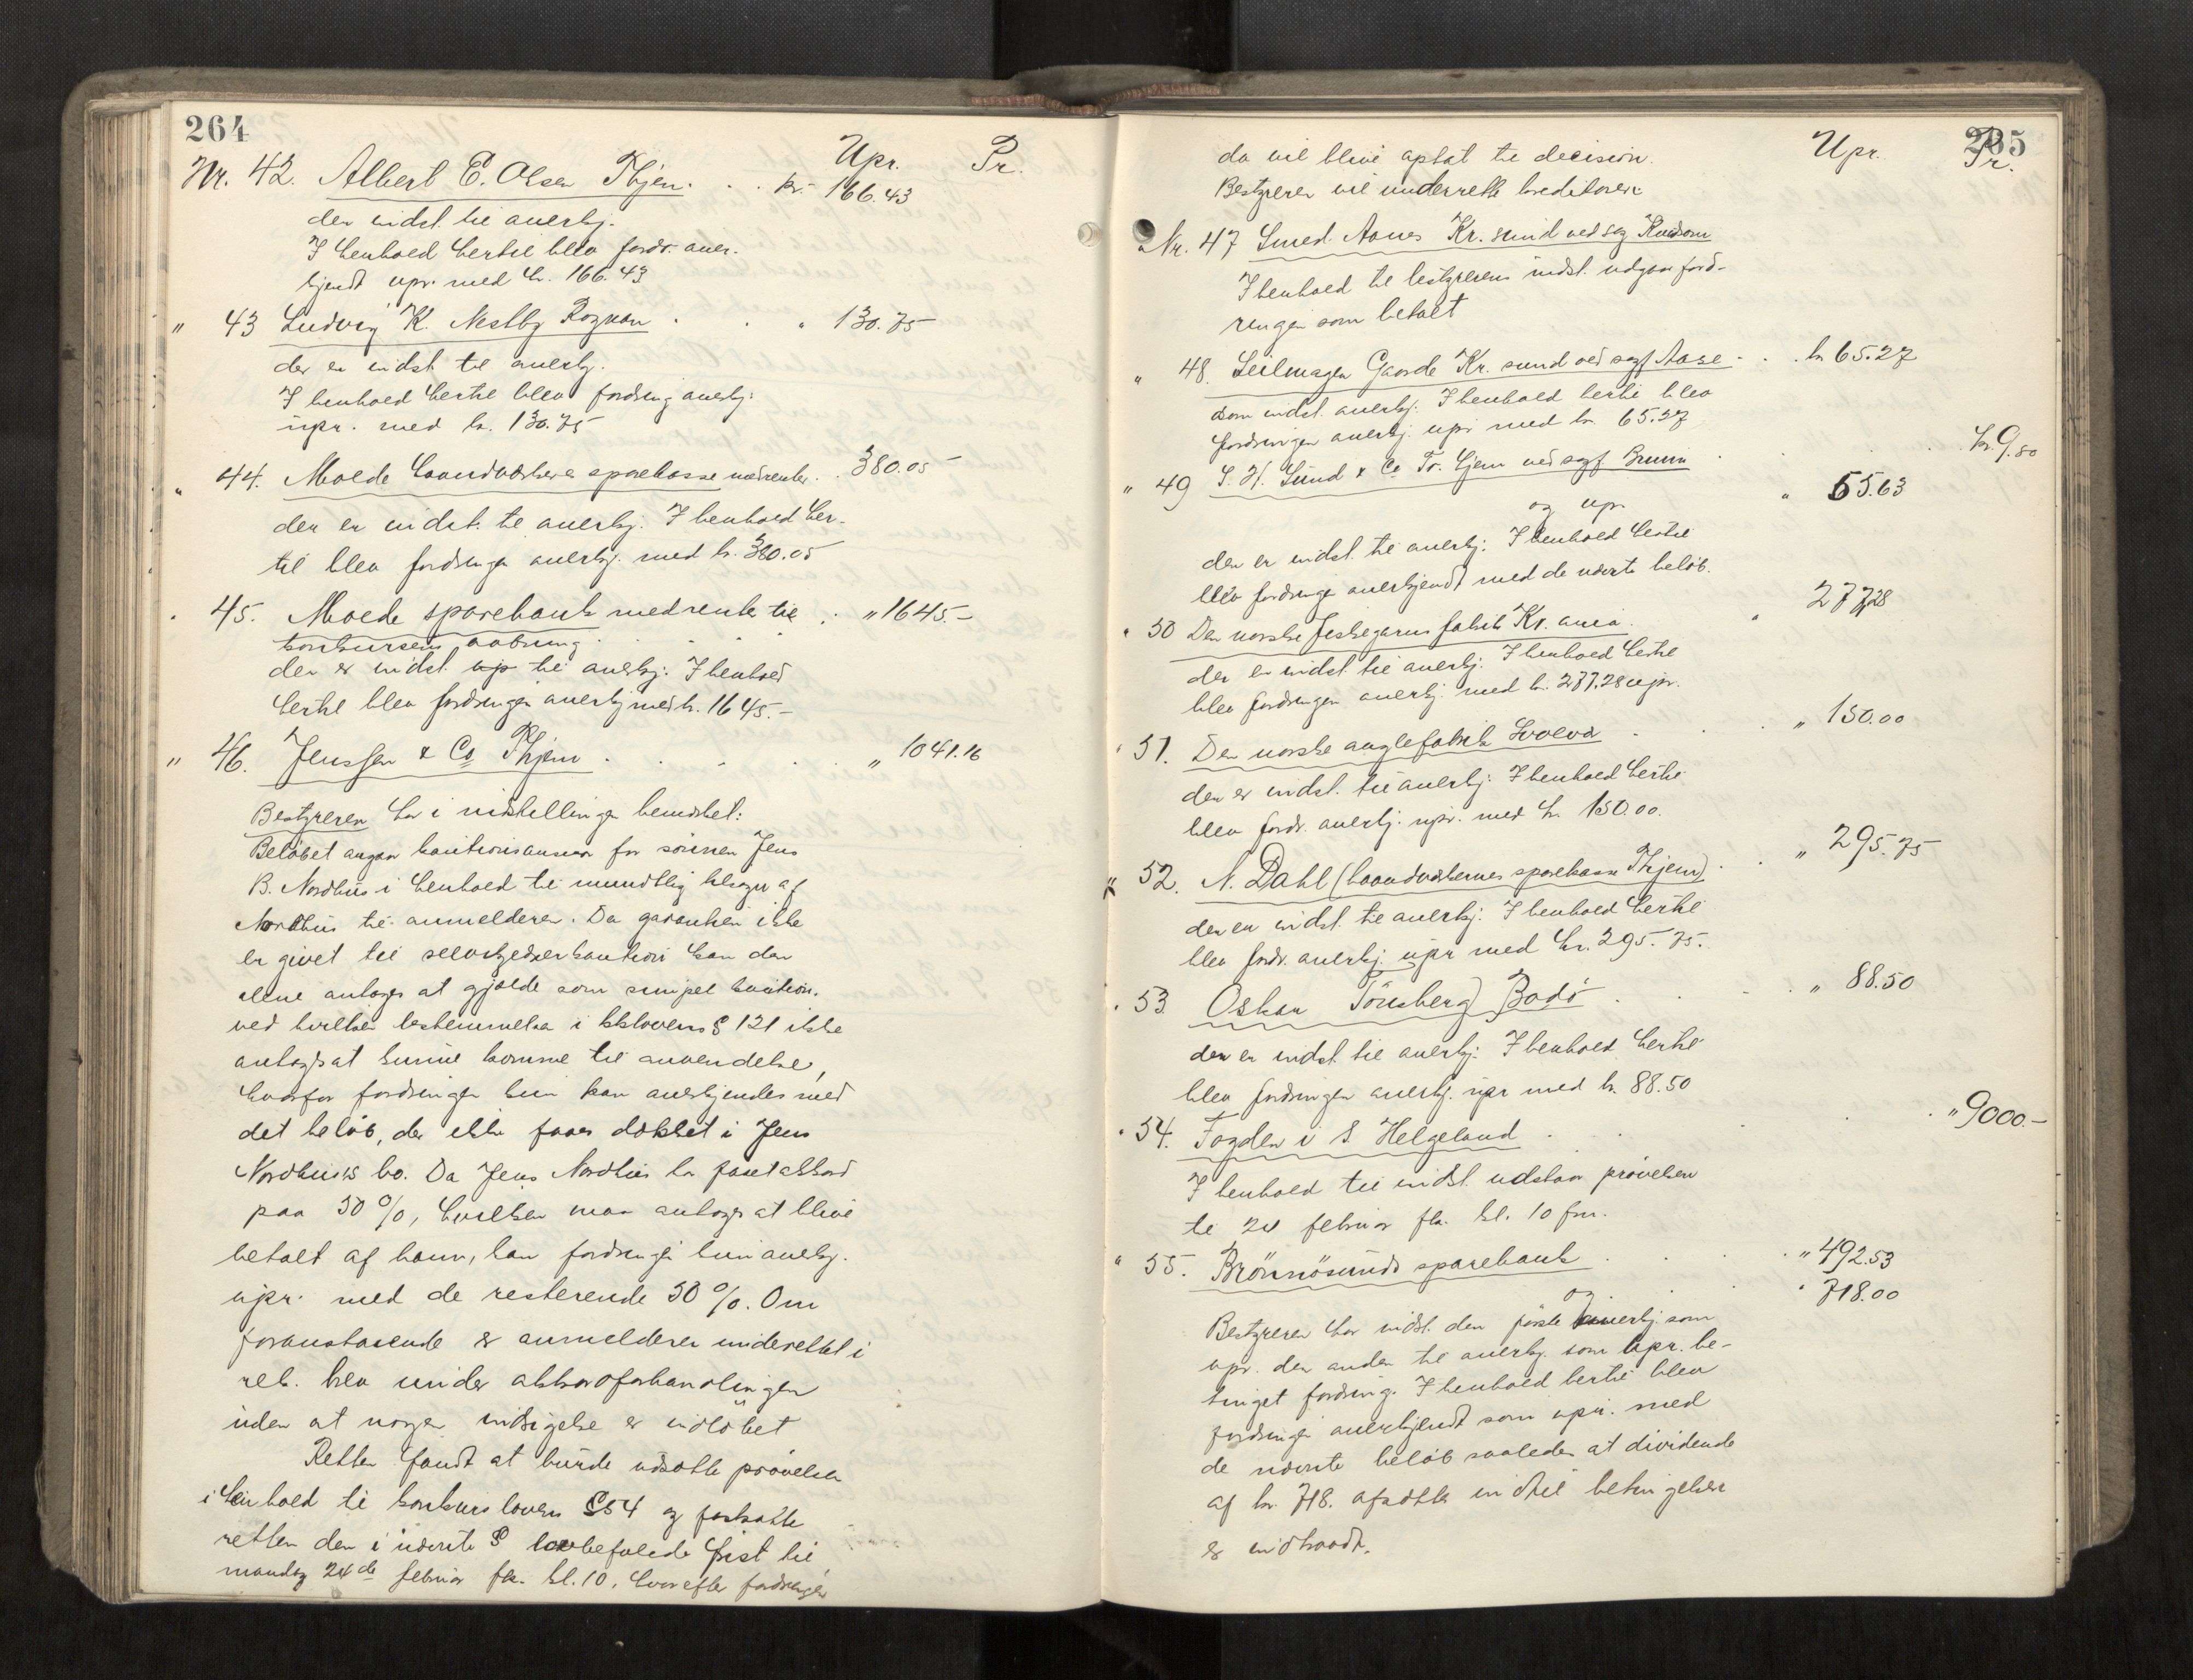 264
Upr. Pr.
Nr. 42. Albert E. Olsen Thjem. . . kr. 166.43
der indst. til anerkj.
I henhold hertil blev fordr. aner-
kjendt upr. med kr. 166.43
" 43 Ludvig K. Nestby . . " 130.75
der er indst. til anerkj.
I henhold hertil blev fordring anerkj.
upr. med kr. 130.75
" 44. Molde haandværkeres sparekasse med renter . . 380.05
der er indst. til anerkj. I henhold her-
til blev fordringen anerkj. med kr. 380.05
" 45. Molde sparebank med rente til . " 1645.-
konkursens aabning.
der er indst. til anerkj. I henhold
hertil blev fordringen anerkj. med kr. 1645.-
" 46. Jenssen & Co Thjem . . . . " 1041.16
Bestyreren har i indstillingen bemærket:
Beløbet angaar kautionsansvar for sønnen Jens
B. Nordhus i henhold til mundtlig tilsagn af
Nordhus til anmelderen. Da garantien ikke
er givet til selvskyldnerkaution kan den
alene antages at gjælde som simpel kaution.
ved hvilken bestemmelsen i kklovens § 121 ikke
antages at kunne komme til anvendelse,
hvorfor fordringen kun kan anerkjendes med
det beløb, der ikke faaes dækket i Jens
Nordhus's bo. Da Jens Nordhus har faaet akkord
paa 50 %, hvilken maa antages at blive
betalt af ham, kan fordringen kun anerkj.
upr. med de resterende 50 %. Om
foranstaaende er anmelderen underrettet i
rek. brev under akkordforhandlingen
uden at nogen indsigelse er indløbet
Retten fandt at burde udsætte prøvelsen
i henhold til konkursloven § 54 og fastsatte
retten den i nævnte § lovbefalede frist til
mandag 24de februar fk. kl. 10, hvorefter fordringen
265
Upr. Pr.
da vil blive optat til decision.
Bestyreren vil underrette kreditoren
Nr. 47 Smed Aanes Kr. sund ved sag
I henhold til bestyrerens indst. udgaar ford-
ringen som betalt
" 48. Seilmager Gaarde Kr. sund ved sagf Aase . . kr 65.27
som indst. anerkj. I henhold hertil blev
fordringen anerkj. upr. med kr. 65.27
" 49 S. H. Lund & Co Tr. hjem ved sagf Bruun . . . kr. 9.80
og upr. " 65.63
der er indst. til anerkj. I henhold hertil
blev fordringen anerkjendt med de nævnte beløb.
" 50 Den norske fiskegarnsfabrik Kr. ania . " 277,28
der er indst. til anerkj. I henhold hertil
blev fordringen anerkj. med kr. 277.28 upr.
" 51. Den norske anglefabrik Svolvær . . " 150.00
der er indst. til anerkj. I henhold hertil
blev fordr. anerkj. upr. med kr. 150.00.
" 52. N. Dahl (haandværkernes sparekasse Thjem) . . " 295.75
der er indst. til anerkj. I henhold hertil
blev fordr. anerkj. upr med kr. 295.75.
" 53 Oskar Tønsberg Bodø . . . " 88.50
der er indst. til anerkj. I henhold hertil
blev fordringen anerkj. upr med kr. 88.50
" 54. Fogden i S Helgeland . . . . " 9000.-
I henhold til indst. udstaar prøvelsen
til 24 februar fk. kl. 10 fm.
" 55. Brönnösunds sparebank . . . " 492.53
og . . " 718.00
Bestyreren har indst. den første anerkj. som
upr. den anden til anerkj. som upr. be-
tinget fordring. I henhold hertil blev
fordringen anerkjendt som upr. med
de nævnte beløb saaledes at dividende
af kr. 718. afsættes indtil betingelsen
er indtraadt.